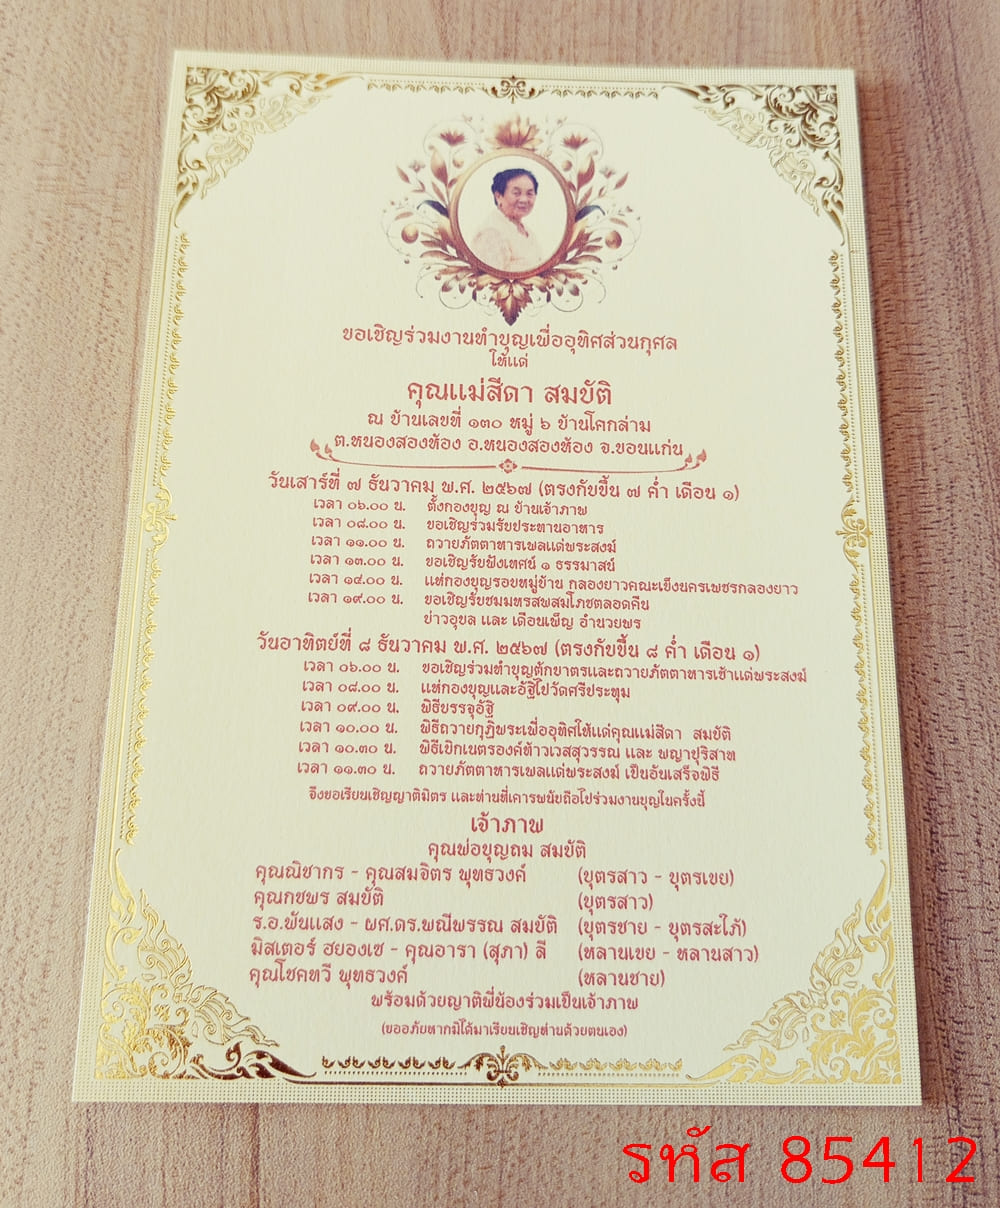 ขอเชิญร่วมงานทำบุญเพื่ออุทิศส่วนกุศล
ให้แด่
คุณแม่สีดา สมบัติ
ณ บ้านเลขที่ ๑๓๐ หมู่ ๖ บ้านโคกล่าม
ต.หนองสองห้อง อ.หนองสองห้อง จ.ขอนแก่น
วันเสาร์ที่ ๗ ธันวาคม พ.ศ. ๒๕๖๗ (ตรงกับขึ้น ๗ ค่ำ เดือน ๑)
เวลา ๐๖.๐๐ น. ตั้งกองบุญ ณ บ้านเจ้าภาพ
เวลา ๐๘.๐๐ น. ขอเชิญร่วมรับประทานอาหาร
เวลา ๑๑.๐๐ น. ถวายภัตตาหารเพลแด่พระสงฆ์
เวลา ๑๓.๐๐ น. ขอเชิญรับฟังเทศน์ ๑ ธรรมาสน์
เวลา ๑๔.๐๐ น. แห่กองบุญรอบหมู่บ้าน กลองยาวคณะเข็งนครเพชรกลองยาว
เวลา ๑๙.๐๐ น. ขอเชิญรับชมมหรสพสมโภชตลอดคืน
บ่าวอุบล และ เดือนเพ็ญ อำนวยพร
วันอาทิตย์ที่ ๘ ธันวาคม พ.ศ. ๒๕๖๗ (ตรงกับขึ้น ๘ ค่ำ เดือน ๑)
เวลา ๐๖.๐๐ น. ขอเชิญร่วมทำบุญตักบาตรและถวายภัตตาหารเช้าแด่พระสงฆ์
เวลา ๐๘.๐๐ น. แห่กองบุญและอัฐิไปวัดศรีประทุม
เวลา ๐๙.๐๐ น. พิธีบรรจุอัฐิ
เวลา ๑๐.๐๐ น. พิธีถวายกุฏิพระเพื่ออุทิศให้แด่คุณแม่สีดา สมบัติ
เวลา ๑๐.๓๐ น. พิธีเบิกเนตรองค์ท้าวเวสสุวรรณ และ พญาปุริสาท
เวลา ๑๑.๓๐ น. ถวายภัตตาหารเพลแด่พระสงฆ์ เป็นอันเสร็จพิธี
จึงขอเรียนเชิญญาติมิตร และท่านที่เคารพนับถือไปร่วมงานบุญในครั้งนี้
เจ้าภาพ
คุณพ่อบุญถม สมบัติ
คุณณิชากร - คุณสมจิตร พุทธวงค์ (บุตรสาว - บุตรเขย)
คุณกชพร สมบัติ (บุตรสาว)
ร.อ.พันแสง - ผศ.ดร.พณีพรรณ สมบัติ (บุตรชาย - บุตรสะใภ้)
มิสเตอร์ ฮยองเซ - คุณอารา (สุภา) ลี (หลานเขย - หลานสาว)
คุณโชคทวี พุทธวงค์ (หลานชาย)
พร้อมด้วยญาติพี่น้องร่วมเป็นเจ้าภาพ
(ขออภัยหากมิได้มาเรียนเชิญท่านด้วยตนเอง)
รหัส 85412